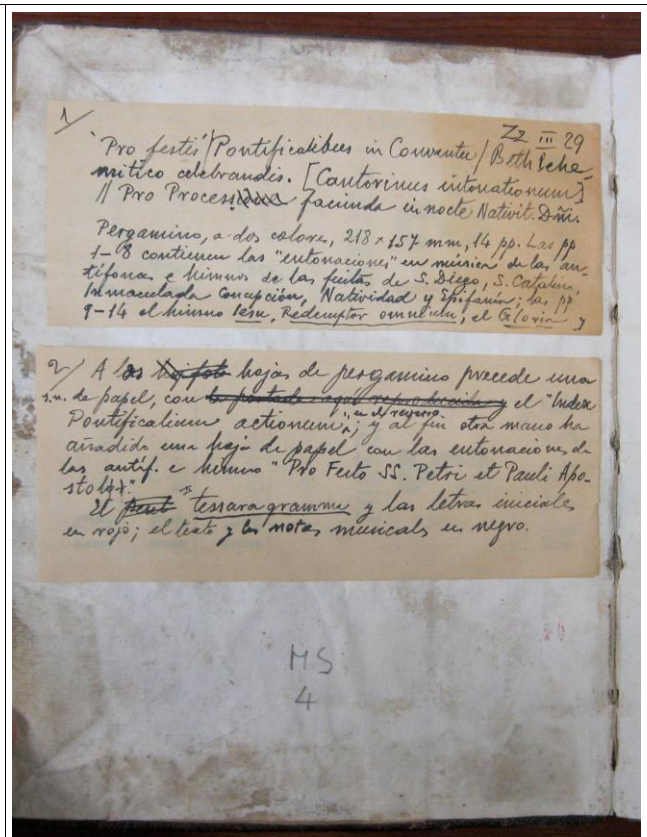 1/
Zz III 29
"Pro festis / Pontificalibus in Conventu / Bethlehe-
mitico celebrandis. [Cantorinus intonationum]
// Pro Processione facienda in nocte Nativit. Dñi.
Pergamino, a dos colores, 218 x 157 mm, 14 pp. Las pp
1-8 contienen las "entonaciones" en música de las an-
tífonas e himnos de las fiestas de S. Diego, S. Catalina,
Inmaculada Concepción, Natividad y Epifanía; las pp
9-14 el himno Iesu, Redemptor omnium, el Gloria y
2/ A las hojas de pergamino precede una
s.n. de papel, con la portada aquí reproducida y el "Index
Pontificalium actionum", en el reverso; y al fin otra mano ha
añadido una hoja de papel con las entonaciones de
las antíf. e himno "Pro Festo SS. Petri et Pauli Apo-
stolor."
El "tessaragramma" y las letras iniciales
en rojo; el texto y las notas musicals en negro.
MS
4